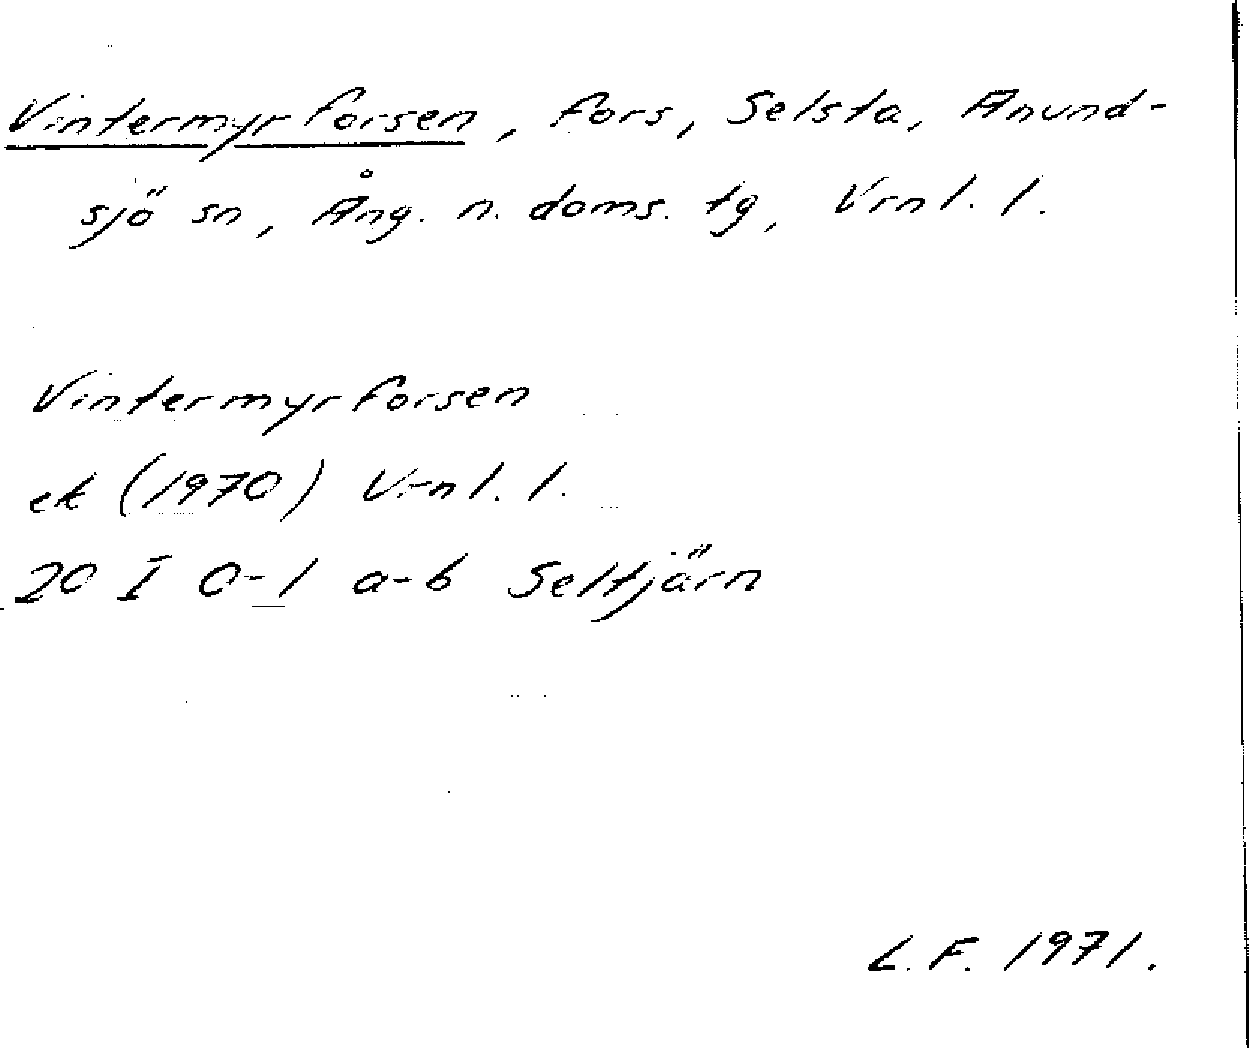 Vintermyrforsen, fors, Selsta, Anund-
sjö sn, Ång. n. doms. tg, Vrnl. l.
Vintermyrforsen
ek (1970) Vrnl. l.
20 I 0-1 a-b Seltjärn
L.F. 1971.